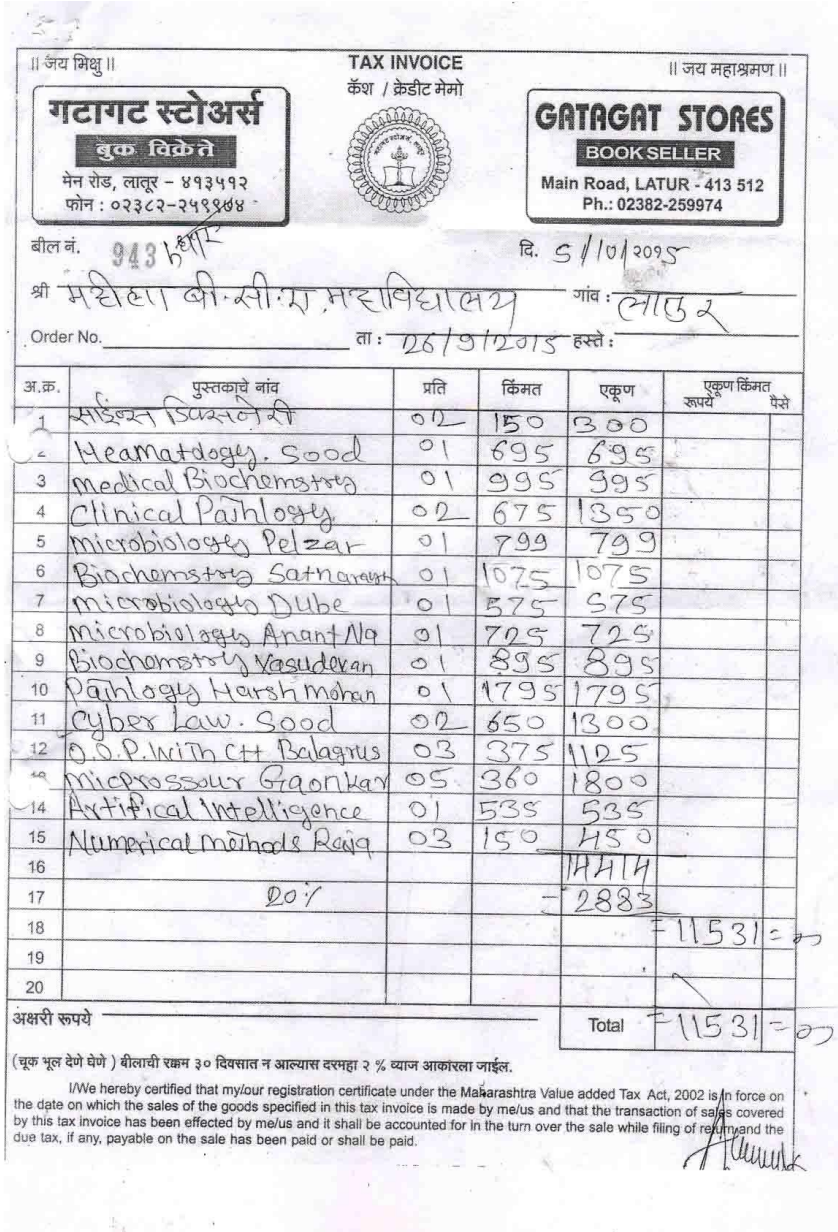 ॥ जय भिक्षु ॥
TAX INVOICE
॥ जय महाश्रमण ॥
कॅश / क्रेडीट मेमो
गटागट स्टोअर्स
बुक विक्रेते
मेन रोड, लातूर – ४१३५१२
फोन : ०२३८२-२५९९७४
GATAGAT STORES
BOOK SELLER
Main Road, LATUR - 413 512
Ph.: 02382-259974
बील नं. 943 उधार
दि. 5/10/2015
श्री महिला बी.सी.ए. महाविद्यालय गांव : लातुर
Order No. ता : 26/9/2015 हस्ते :
अ.क्र. पुस्तकाचे नांव प्रति किंमत एकूण एकूण किंमत
रूपये पैसे
1 साईन्स डिक्सनेरी 02 150 300
2 Heamatology. Sood 01 695 695
3 Medical Biochemstry 01 995 995
4 Clinical Pathlogy 02 675 1350
5 Microbiology Pelzar 01 799 799
6 Biochemstry 01 1075 1075
7 Microbiology Dube 0 575 575
8 Microbiology Anant Na 01 725 725
9 Biochemstry Vasudevan 01 895 895
10 Pathlogy Harsh mohan 01 1795 1795
11 Cyber Law. Sood 02 650 1300
12 O.O.P. With C++ Balagrus 03 375 1125
Microssour Gaonkar 05 360 1800
14 Artifical Intelligence 01 535 535
15 Numerical methods Raja 03 150 450
16 14414
17 20% - 2883
18 = 11531 = 00
19
20
अक्षरी रूपये
Total = 11531 = 00
(चूक भूल देणे घेणे ) बीलाची रक्कम ३० दिवसात न आल्यास दरमहा २ % व्याज आकारला जाईल.
I/We hereby certified that my/our registration certificate under the Maharashtra Value added Tax Act, 2002 is in force on
the date on which the sales of the goods specified in this tax invoice is made by me/us and that the transaction of sales covered
by this tax invoice has been effected by me/us and it shall be accounted for in the turn over the sale while filing of return and the
due tax, if any, payable on the sale has been paid or shall be paid.